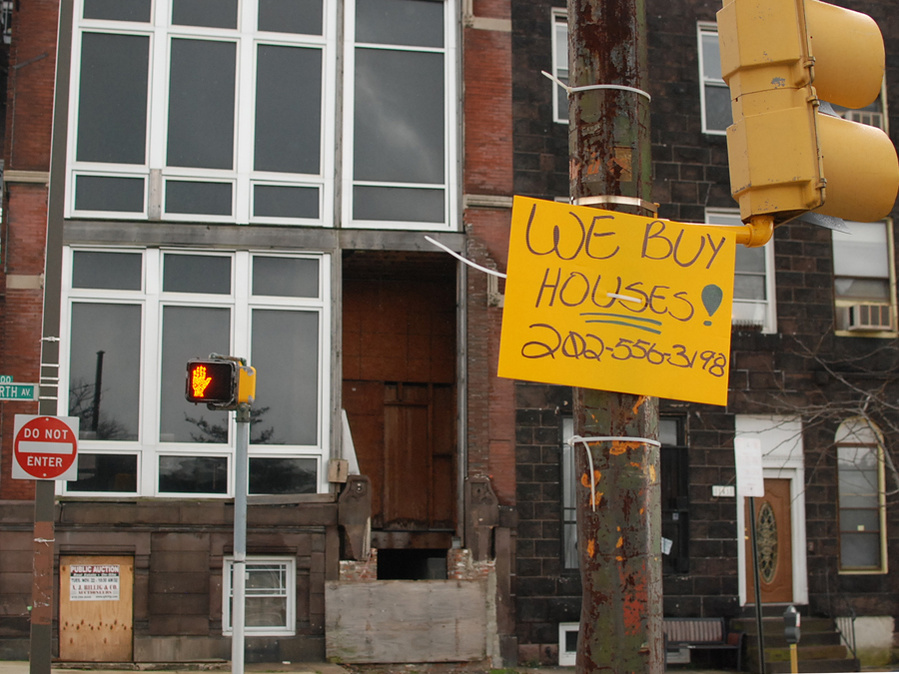 WE BUY
HOUSES!
202-556-3198
RTH AV.
DO NOT
ENTER
PUBLIC AUCTION
A. J. BILLIG & CO.
AUCTIONEERS